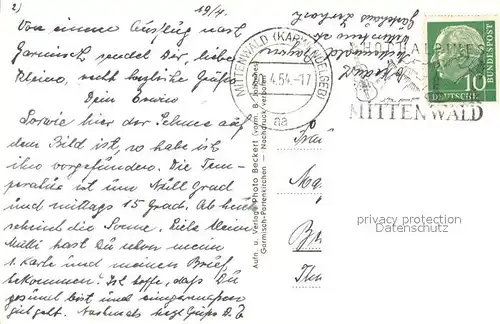 2)
19/4.
Von einem Ausflug nach
Garmisch sendet Dir, liebe
Kleine, recht herzliche Grüße
Dein Erwin
Sowie hier der Schnee auf
dem Bild ist, so habe ich
ihn vorgefunden. Die Tem-
peratur ist um Null Grad
und mittags 15 Grad. Ab heute
scheint die Sonne. Liebe kleine
Mutti hast Du schon meine
1. Karte und meinen Brief
bekommen? Ich hoffe, daß Du
gesund bist und einigermaßen
gut geht. Nochmals Grüße D. E.
Aufn. u. Verlag Photo Beckert (vorm. B. Johannes)
Garmisch-Partenkirchen — Nachdruck verboten
MITTENWALD (KARWENDELGEB)
20.4.54.-17
na
MITTENWALD
DEUTSCHE
BUNDESPOST
10
Mittenwald
Bayern
Frau
privacy protection
Datenschutz